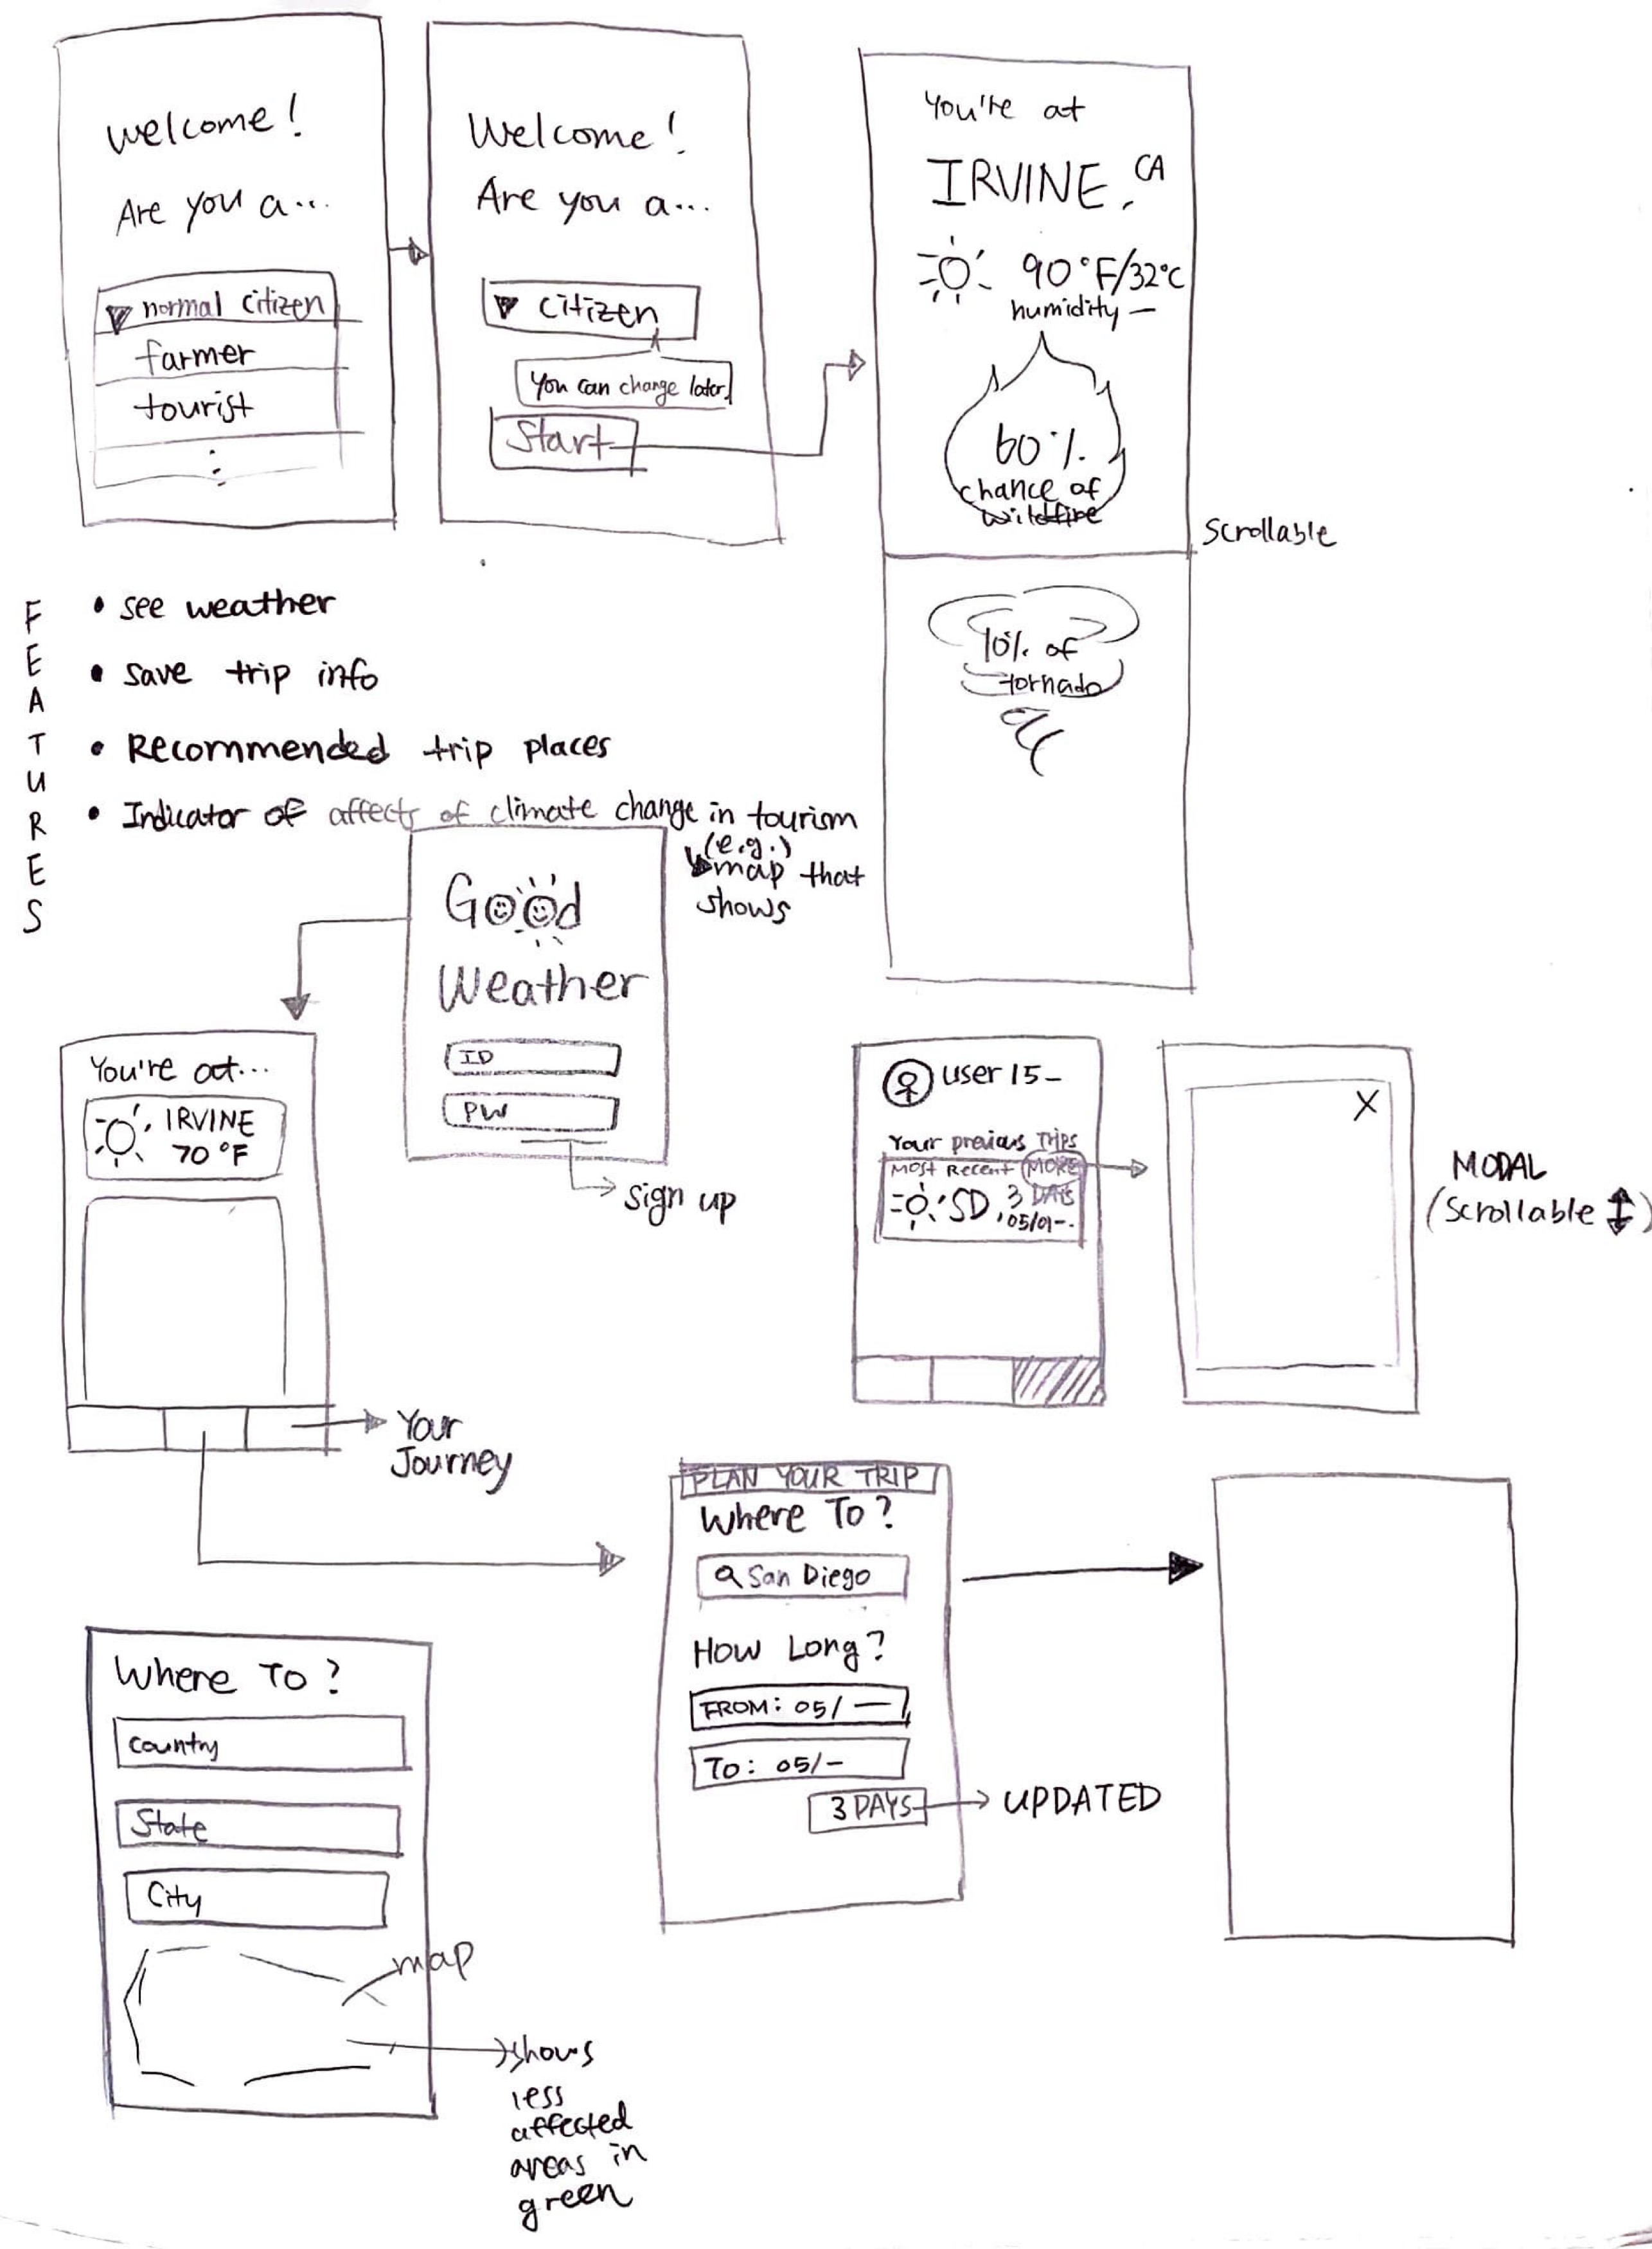 Welcome!
Are you a...
normal citizen
farmer
tourist
Welcome!
Are you a...
citizen
You can change later.
Start
You're at
IRVINE, CA
90°F/32°C
humidity —
60%
chance of
wildfire
Scrollable
10% of
tornado
FEATURES
• see weather
• save trip info
• Recommended trip places
• Indicator of affects of climate change in tourism
(e.g.)
map that
shows
Good
Weather
ID
PW
sign up
You're at...
IRVINE
70°F
Your
Journey
user 15_
Your previous TRIPS
MOST Recent MORE
SD, 3 DAYS
05/01-.
X
MODAL
(Scrollable ↕)
PLAN YOUR TRIP
Where To?
San Diego
How Long?
FROM: 05/ —
To: 05/-
3 DAYS
UPDATED
Where To?
country
State
City
map
shows
less
affected
areas in
green